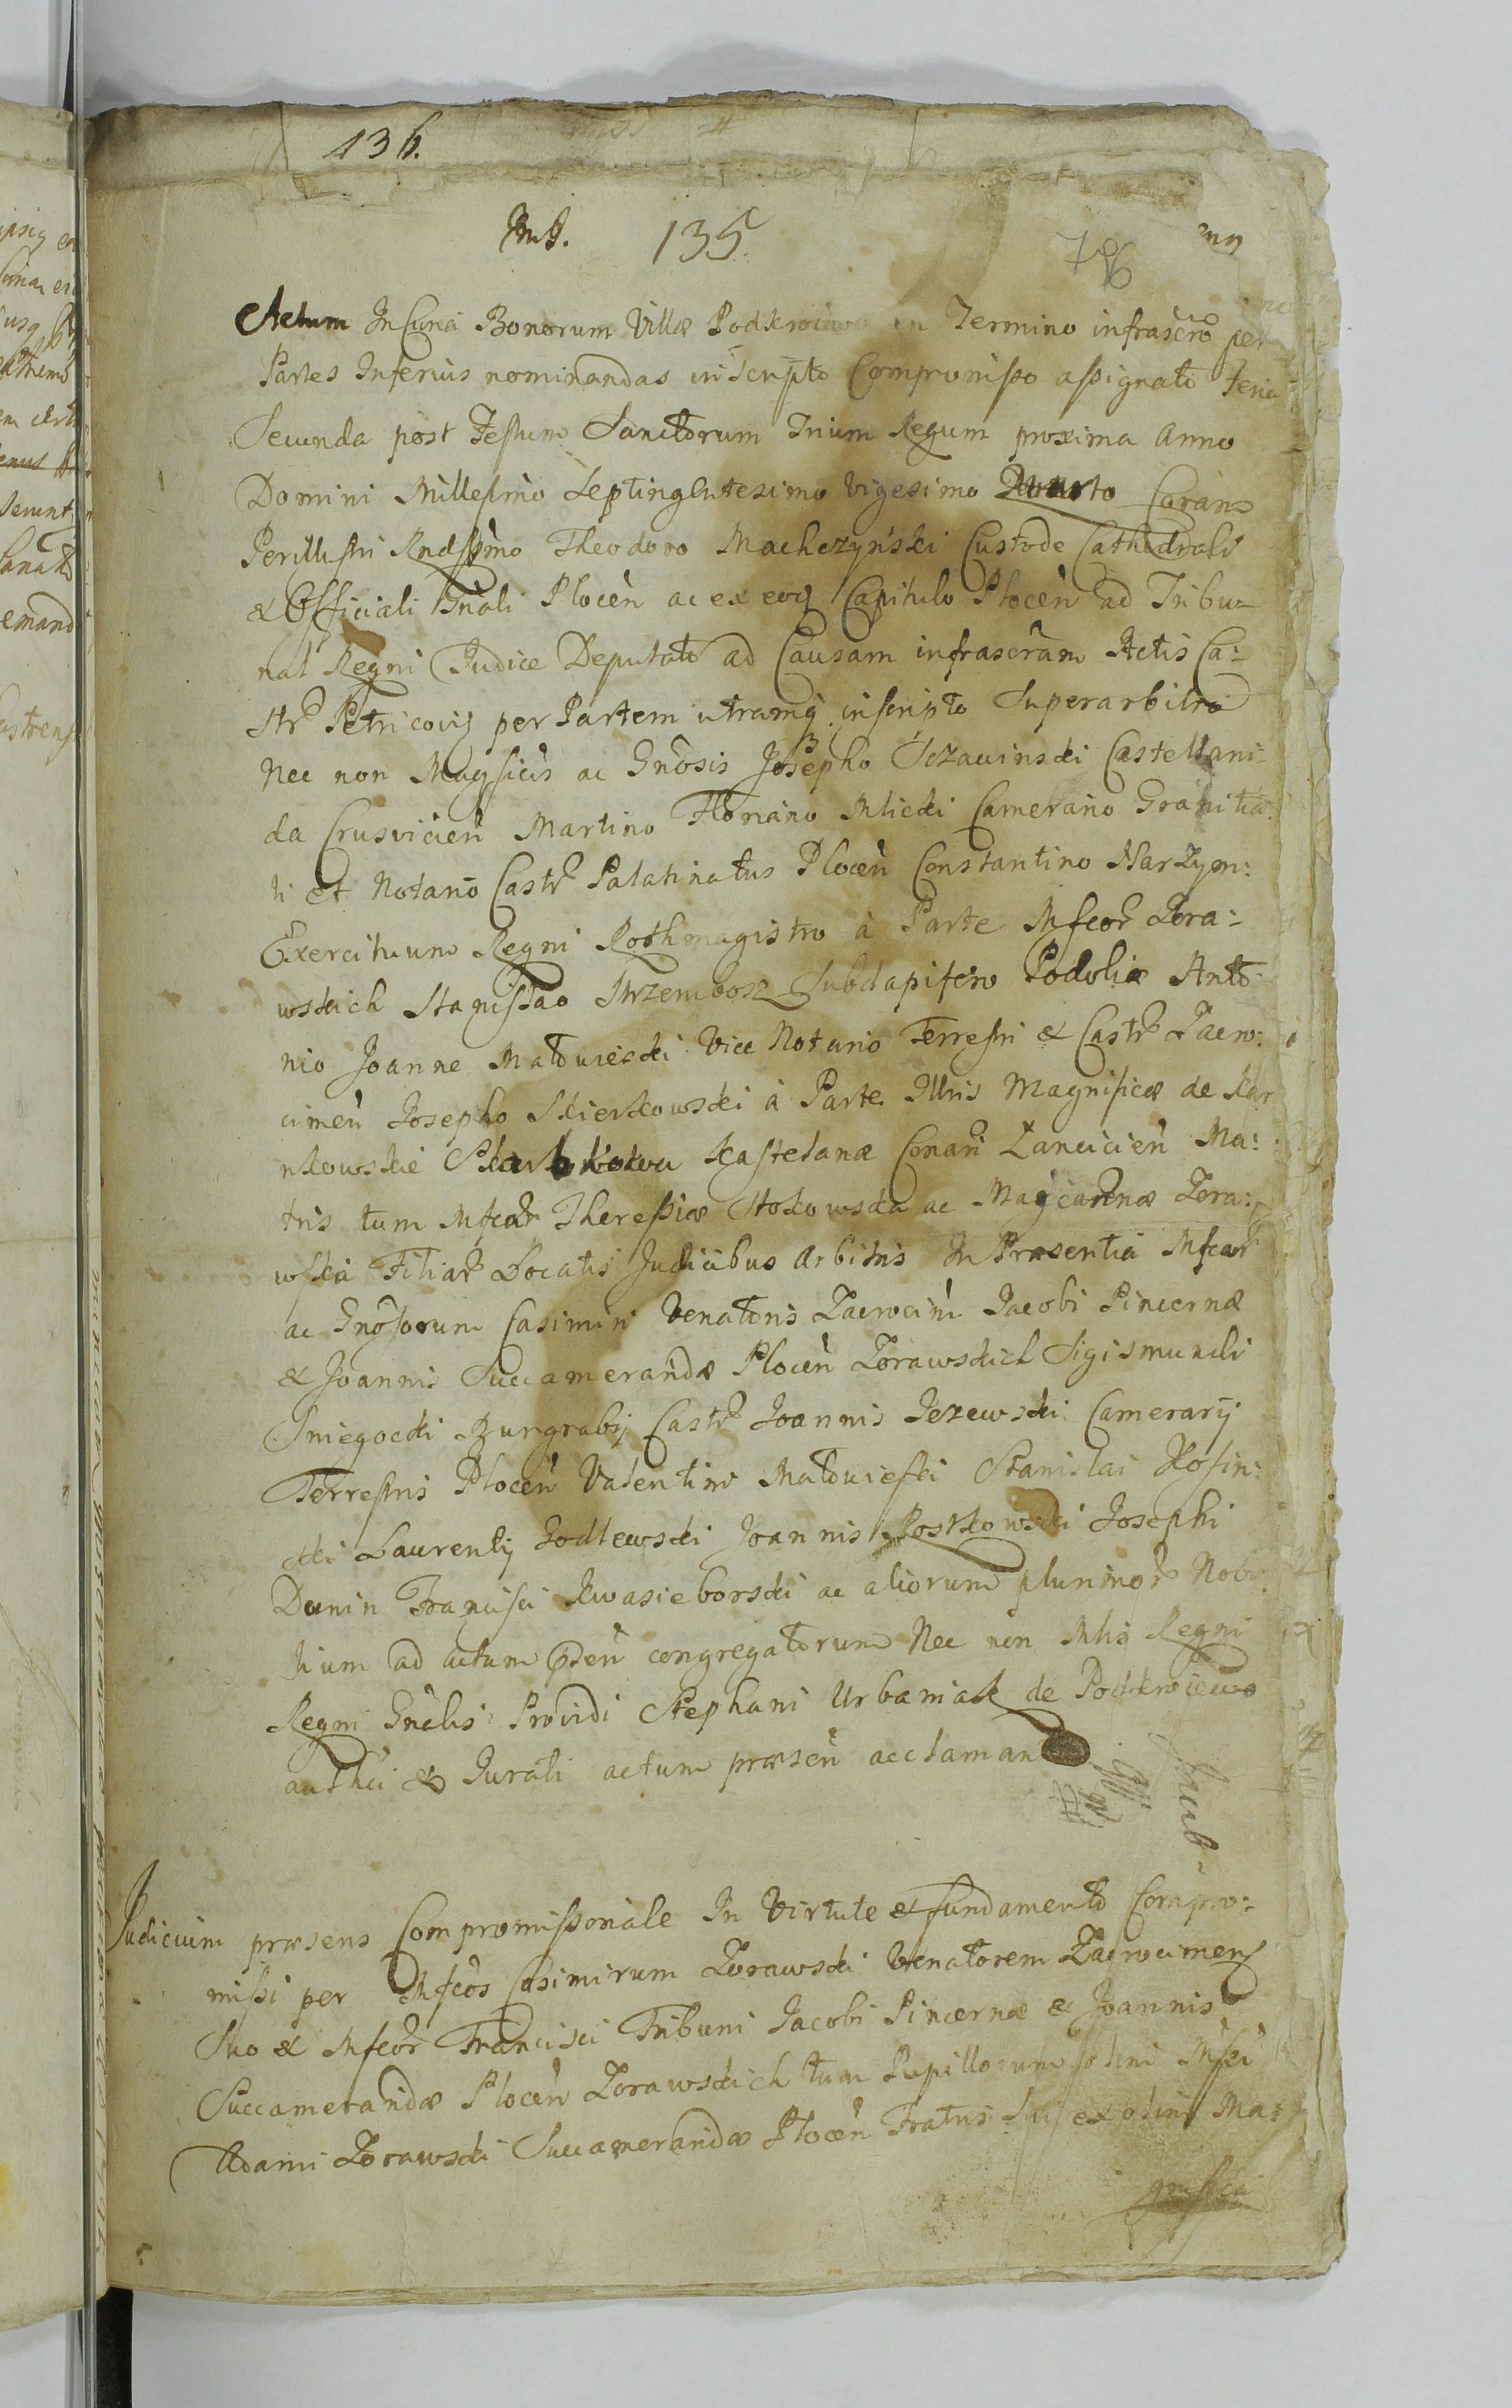 136.
135.
786
Actum In Curia Bonorum Villæ Podkroiewo in Termino infrascrõ per
Partes Inferius nominandas inscripto Compromisso assignato Feria
Secunda post Festum Sanctorum Trium Regum proxima Anno
Domini Millesimo Septingentesimo Vigesimo Quarto Coram
Perillustri Rndssimo Theodoro Machczyński Custode Cathedrali
& Officiali Gnali Plocen̄ ac ex eoq Capitulo Plocen̄ ad Tribu-
nal Regni Judice Deputato ad Causam infrascrãm Actis Ca:
str Petricovi per Partem utramq inscripto Superarbitro
Nec non Magficis ac Gnosis Josepho Sczawinski Castellani-
da Crusvicien̄ Martino Floriano Mlicki Camerario Granitia:
li et Notario Castr Palatinatus Plocen̄ Constantino Narzym:
Exercituum Regni Rothmagistro à Parte Mfcor Zora:
wskich Stanislao Strzembosz Subdapifero Podoliæ Anto:
nio Joanne Maldurejski Vice Notario Terrestri & Castr Zacro:
cimen̄ Josepho Skierkowski à Parte Illris Magnificæ de Kar
nkowskie Skarbkowa Kastelanæ Conarz Lancicien̄ Ma:
tris tum Mfcar Theressiæ Stokowska ac Maryannæ Zora:
wska Filiar Locatis Judicibus Arbitris In Præsentia Mfcor
ac Gnosorum Casimiri Venatoris Zacrocim Jacobi Pincernæ
& Joannis Succamerandæ Plocen̄ Zorawskich Sigismundi
Sniegocki Burgrabij Castr Joannis Jezewski Camerarij
Terrestris Plocen̄ Valentini Malduieski Stanislai Kosin:
ski Laurentij Godlewski Joannis Rostkowski Josephi
Dunin Francisci Kwasieborski ac aliorum plurimor Nobi
lium ad actum præsen̄ congregatorum Nec non Mlis Regni
Regni Gnalis Providi Stephani Urbaniak de Podkroiewo
authci & Jurati actum præsen̄ acclaman
Judicium præsens Compromissoriale In Virtute & fundamento Compro:
missi per Mfcos Casimirum Zorawski Venatorem Zacrocimen
Suo & Mfcor Francisci Tribuni Jacobi Pincernæ & Joannis
Succamerandæ Plocen̄ Zorawskich tum Pupillorum olim Mfci
Adami Zorawski Succamerandæ Plocen̄ Fratris Sui ex olim Ma:
gnifica